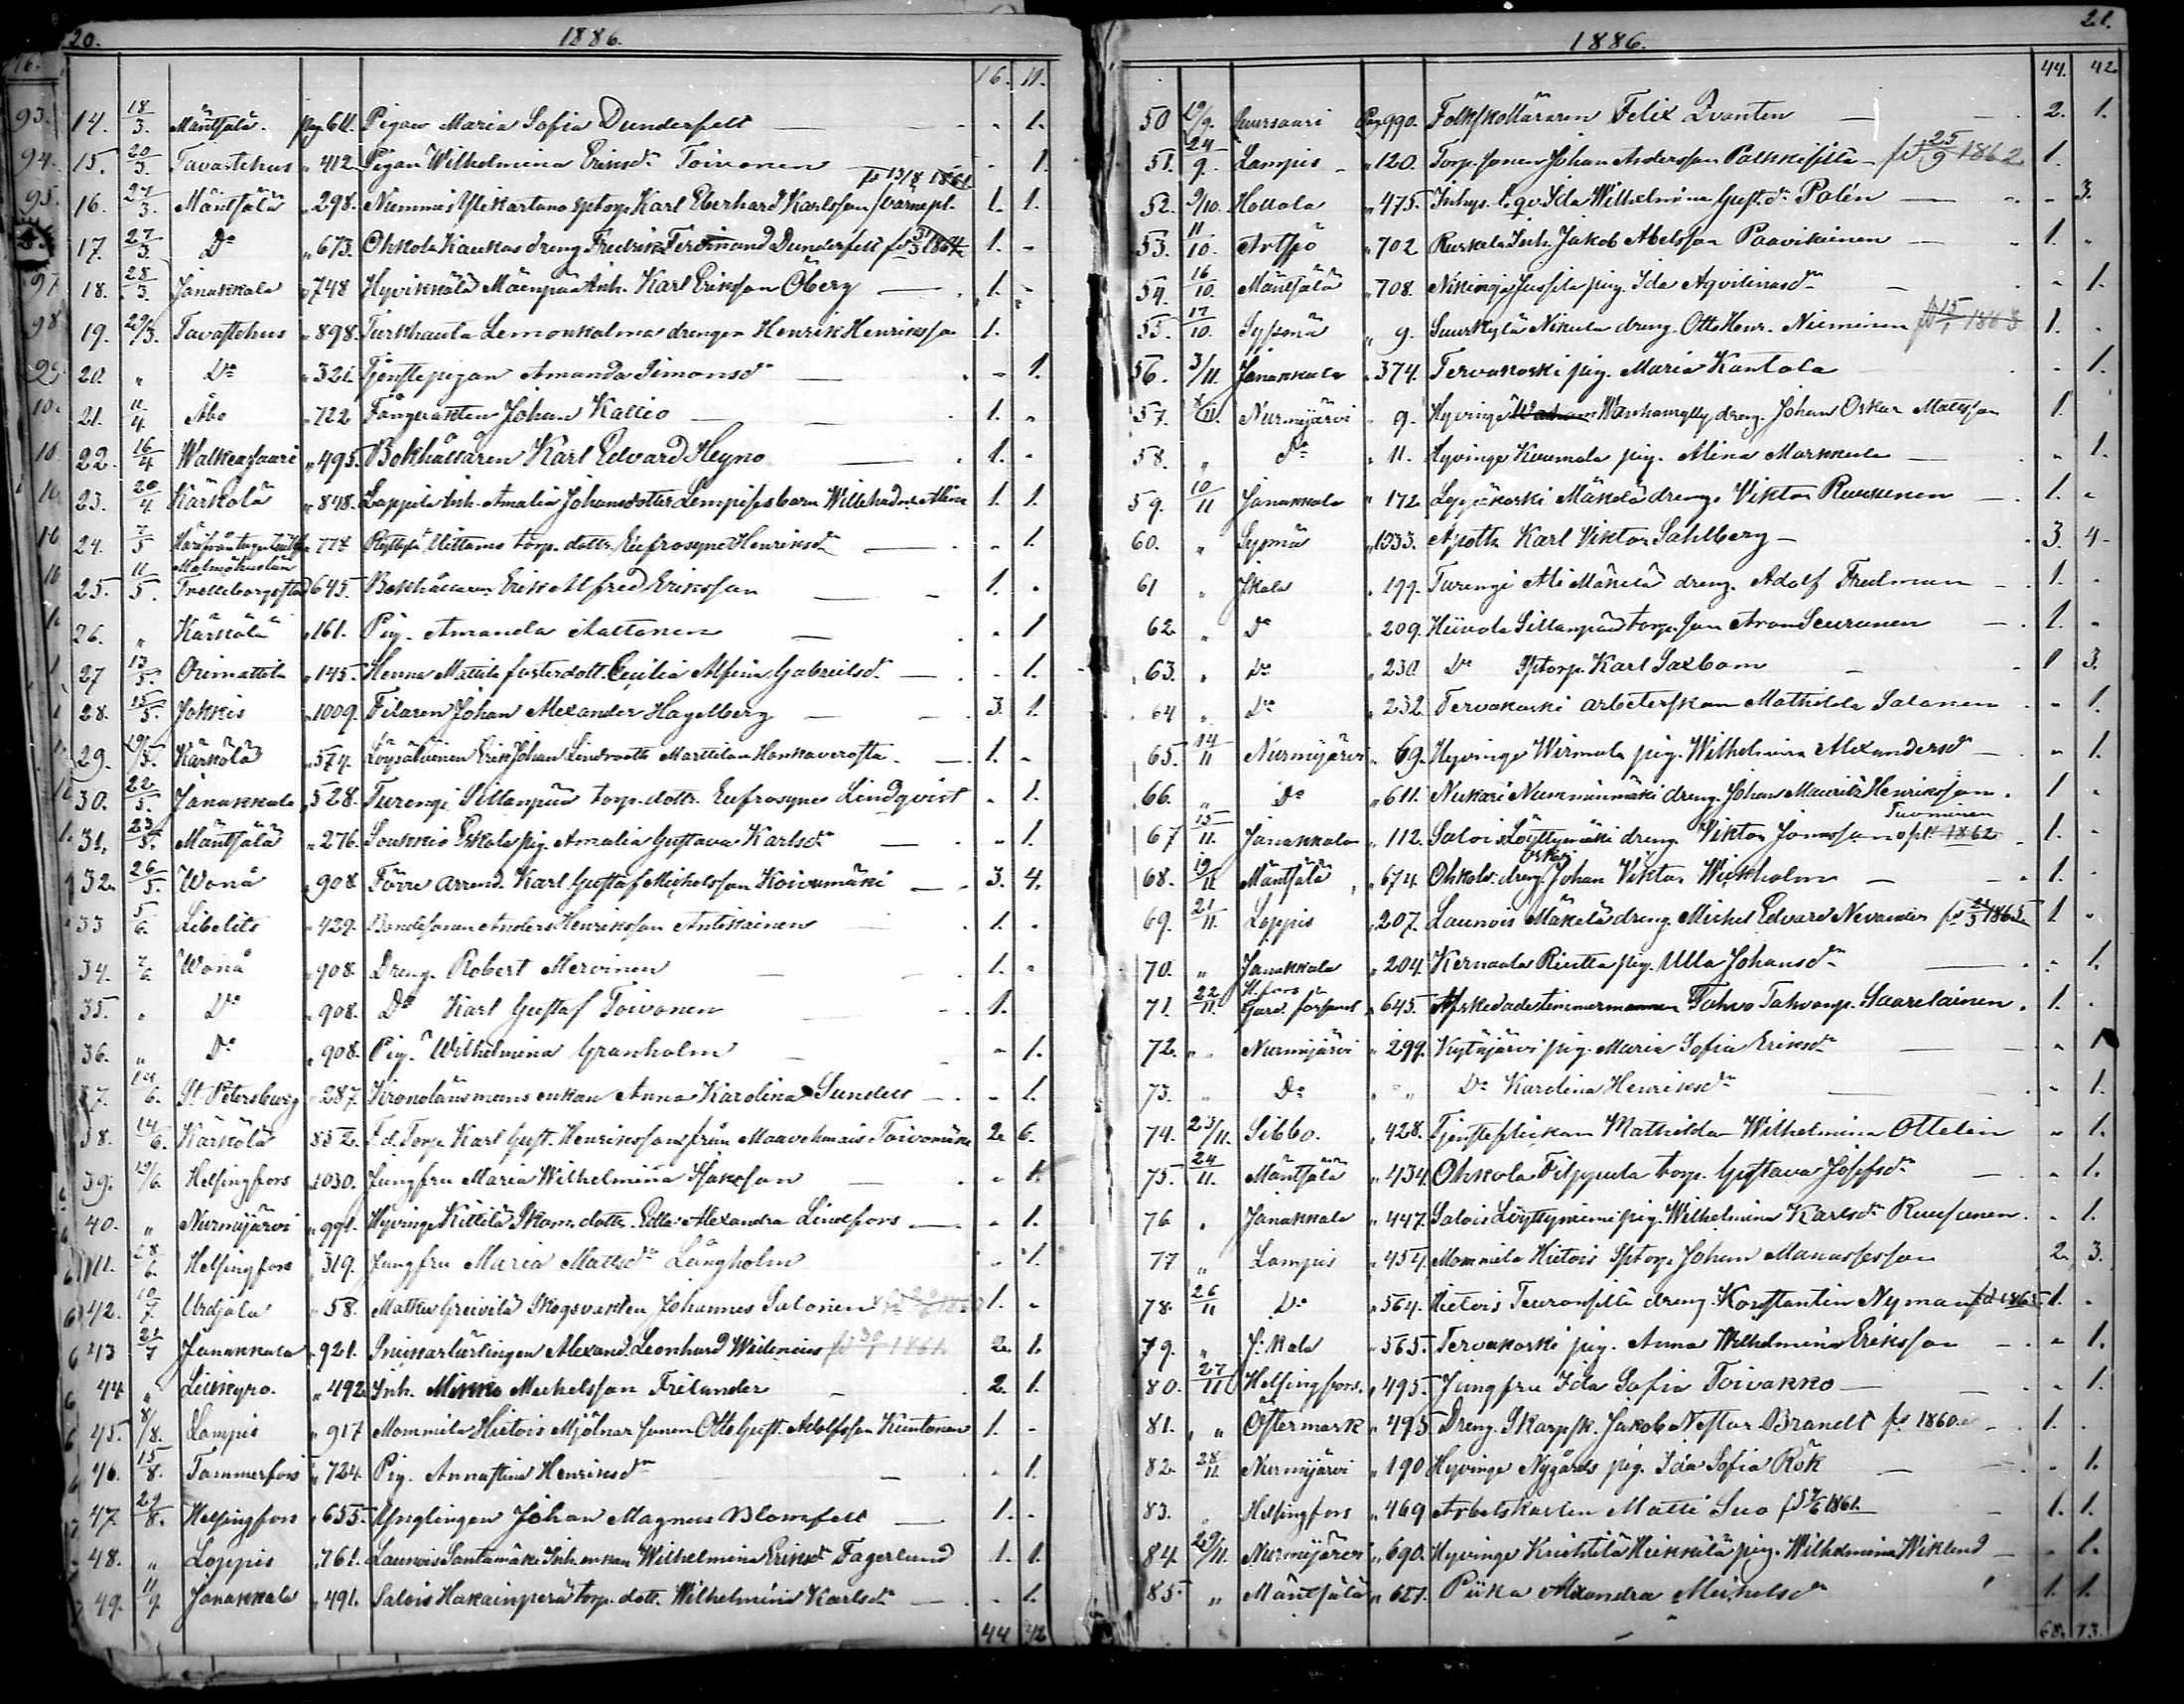 20. 1886.
16. 11.
14. 18/3. Mäntsälä. pag. 611. Pigan Maria Sofia Dunderfelt — 1.
15. 20/3. Tavastehus " 412 Pigan Wilhelmina Eriksdr Toivonen 1.
16. 27/3. Mäntsälä " 298. Nummis Ylikartano sptorp. Karl Eberhard Karlsson 1. 1.
17. 27/3. Do " 673. Ohkola Kaukas dreng Fredrik Ferdinand Dunderfelt 1864 1. -
18. 28/3. Janakkala " 748 Hyvikkälä Mäenpää Inh. Karl Eriksson Öberg — 1. -
19. 29/3. Tavastehus " 898. Turkhauta Lemonkalma drengen Henrik Henriksso 1.
20. " Do " 321. Tjenstepigan Amanda Simonsdr — - 1.
21. 11/4. Åbo " 722 Fångvakten Johan Kallio — 1. -
22. 16/4 Walkeasaari " 495. Bokhållaren Karl Edvard Heyno — 1. -
23. 20/4 Kärkölä " 848. Lappila Inh. Amalia Johansdotter Lempis barn 1. 1.
24. 7/5 " 778 torp. dottr. Eufrosyne Henriksdr — - 1.
Malmöhuslän
25. 11/5. Trelleborgs stad 645. Bokhållaren Erik Alfred Eriksson — 1. -
26. " Kärkölä " 161. Pig. Amanda Aaltonen — - 1
27 13/5. Orimattila " 145. Henna Mattila fosterdott. Cecilia Alfina Gabrielsdr — - 1.
28. 15/5. Jokkis " 1009. Filaren Johan Alexander Hagelberg — 3. 1.
29. 19/5. Kärkölä " 574. Erik Johan Lindroth Marttilan 1. -
30. 22/5. Janakkala " 528. Turengi Sillanpää torp. dottr. Eufrosyne Lindqvist - 1.
31. 23/5. Mäntsälä " 276. Soukkio Eskola pig. Amalia Gustava Karlsdr — - 1.
32. 26/5. Wånå " 908 Förre arrend. Karl Gustaf Michelsson Koivumäki — 3. 4.
33 5/6. Libelits " 429. Bondesonen Anders Henriksson Antikainen 1. -
34. 7/6 Wånå " 908. Dreng. Robert Mervinen — 1. -
35. " Do " 908. Do Karl Gustaf Toivonen 1.
36. " Do " 908. Pig. Wilhelmina Granholm — - 1.
37. /6. St. Petersburg " 287. Kronolänsmans enkan Anna Karolina Sundell — - 1.
38. 14/6. Kärkölä 852. F.d. Torp. Karl Gust. Henriksson från Maavehmais Toivomäki 2. 6.
39. 19/6. Helsingfors " 1030. Jungfru Maria Wilhelmina Isaksson — - 1.
40. " Nurmijärvi " 991. Hyvinge Kittilä Skom. dottr. Edla Alexandra Lindfors — - 1.
41. 28/6. Helsingfors " 319. Jungfru Maria Mattsdr Långholm - 1.
42. 10/7. Urdjala " 58. Mattku Skogsvakten Johannes Salonen 1. -
43 21/7 Janakkala " 921. Snickarlärlingen Alexand. Leonhard 1861. 2. 1.
44 " " 492 Inh. Mikko Michelsson Frilander 2. 1.
45. 8/8. Lampis " 917 Mommila Hietois Mjölnar sonen Otto Gust. Adolfsson Kuntonen 1. -
46. 15/8. Tammerfors " 724. Pig. Annastina Henriksdr — - 1.
47. 29/8. Helsingfors " 655. Ynglingen Johan Magnus Blomfelt — 1. -
48. " Loppis " 761. Launois Santamäki Inh. enkan Wilhelmina Eriksdr Fagerlund 1. 1.
49. 11/9. Janakkala " 491. Salois Hakainperä torp. dott. Wilhelmina Karlsdr — - 1.
44 42
1886. 21.
44. 42
50 19/9. Suursaari Pag. 990. Folkskolläraren Felix Qvanten — 2. 1.
51. 24/9. Lampis " 120. Torp. sonen Johan Andersson Palkkisilta fd 25/9 1862 1.
52. 9/10. Hollola " 475. Inhys. Ida Wilhelmina Gust.dr Palén — - 3.
53. 11/10. Artsjö " 702 Ruskela Inh. Jakob Abelsson Paavikainen — 1. -
54. 16/10. Mäntsälä " 708. Nikinoja Jussila pig. Ida Aqvilinasdr - 1.
55. 17/10. Sysmä " 9. Suurkylä Nikula dreng. Otto Henr. Nieminen 1863 1. -
56. 3/11. Janakkala " 374. Tervakoski pig. Maria Kantola - 1.
57. 8/11. Nurmijärvi " 9. Hyvinge Wanhamylly dreng. Johan Oskar Mattsson 1.
58. " Do " 11. Hyvinge Kuumola pig. Alina Markkula — - 1.
59. 10/11 Janakkala " 172 Leppäkoski Mäkelä dreng. Viktor Ruukunen — 1. -
60. " Sysmä " 1033. Apoth. Karl Viktor Sahlberg — 3. 4.
61 " J:kala " 199. Turengi Ali Mäkelä dreng. Adolf Fredman — 1. -
62. " Do " 209. Hiivola Sillanpää torp. son Aron Seuranen — 1. -
63. " Do " 230 Do Sptorp. Karl Saxbom 1 3.
64 " Do " 232. Tervakoski arbeterskan Mathilda Salonen - 1.
65. 14/11 Nurmijärvi " 69. Hyvinge Wirmala pig. Wilhelmina Alexandersdr — - 1.
66. " Do " 611. Nukari Numminmäki dreng. Johan Maurits Henriksson. 1 -
Tuominen
67 15/11. Janakkala " 112. Salois Löyttymäki dreng. Viktor Jonasson 1862 1. -
Oskar
68. 19/11 Mäntsälä " 674. Ohkola dreng Johan Viktor Wickholm — 1. -
69. 21/11. Loppis " 207. Launois Mäkelä dreng. Michel Edvard Nevander 1865 1. -
70. " Janakkala " 204. Kernaala Rietta pig. Ulla Johansdr — - 1.
H.fors
71. 22/11. Gard. församl " 645. Afskedade timmermannen Tahvo Tahvonp. Saarelainen. 1. -
72. " " Nurmijärvi " 299. Kytäjärvi pig. Maria Sofia Eriksdr — - 1
73. " Do " " Do Karolina Henriksdr — - 1.
74. 23/11. Sibbo. " 428. Tjensteflickan Mathilda Wilhelmina Ottelin - 1.
75. 24/11. Mäntsälä " 434. Ohkola Filppula torp. Gustava Josefsdr — - 1.
76. " Janakkala " 447. Salois Löyttyniemi pig. Wilhelmina Karlsdr Ruusunen. - 1.
77 " Lampis " 454. Mommila Hietois Sptorp. Johan Manassesson 2. 3.
78. 26/11 Do " 564. Hietois Teuronsilta dreng. Konstantin Nyman fd 1865 1. -
79. " J:kala " 565. Tervakoski pig. Anna Wilhelmina Eriksson - 1.
80. 27/11 Helsingfors. " 495. Jungfru Ida Sofia Toivakko — - 1.
81. " " Östermark " 495 Dreng. Skarpsk. Jakob Nestor Brandt fd 1860. 1. -
82. 28/11. Nurmijärvi " 190 Hyvinge Nygårds pig. Ida Sofia Rök — - 1.
83. " Helsingfors " 469 Arbetskarlen Matti Suo 1861. 1. 1.
84. 29/11. Nurmijärvi " 690. Hyvinge Knichtilä Heikkilä pig. Wilhelmina Wiklund — - 1.
85. " Mäntsälä " 627. Piika Alexandra Michelsdr 1. 1.
68. 73.